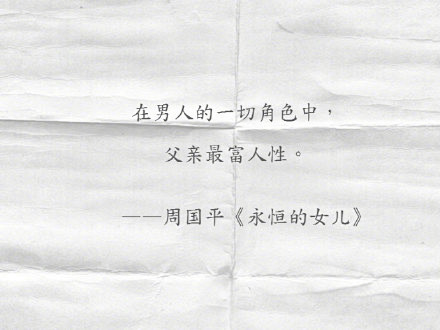 在男人的一切角色中，
父亲最富人性。
——周国平《永恒的女儿》